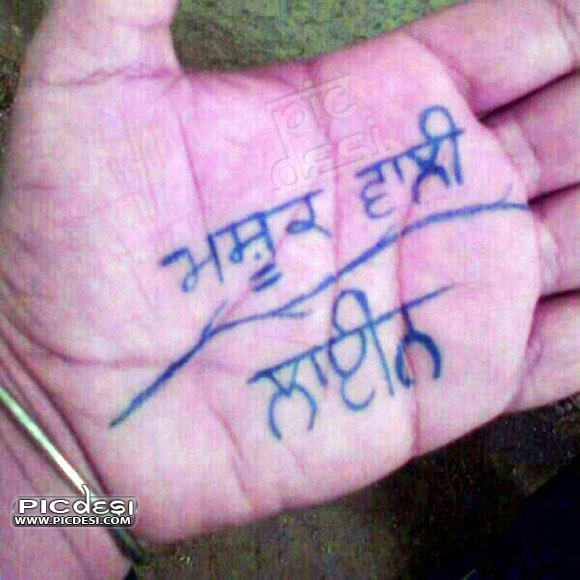 pic
desi
ਮਸ਼ੂਕ ਵਾਲੀ
ਲਾਈਨ
PICdesi
WWW.PICDESI.COM